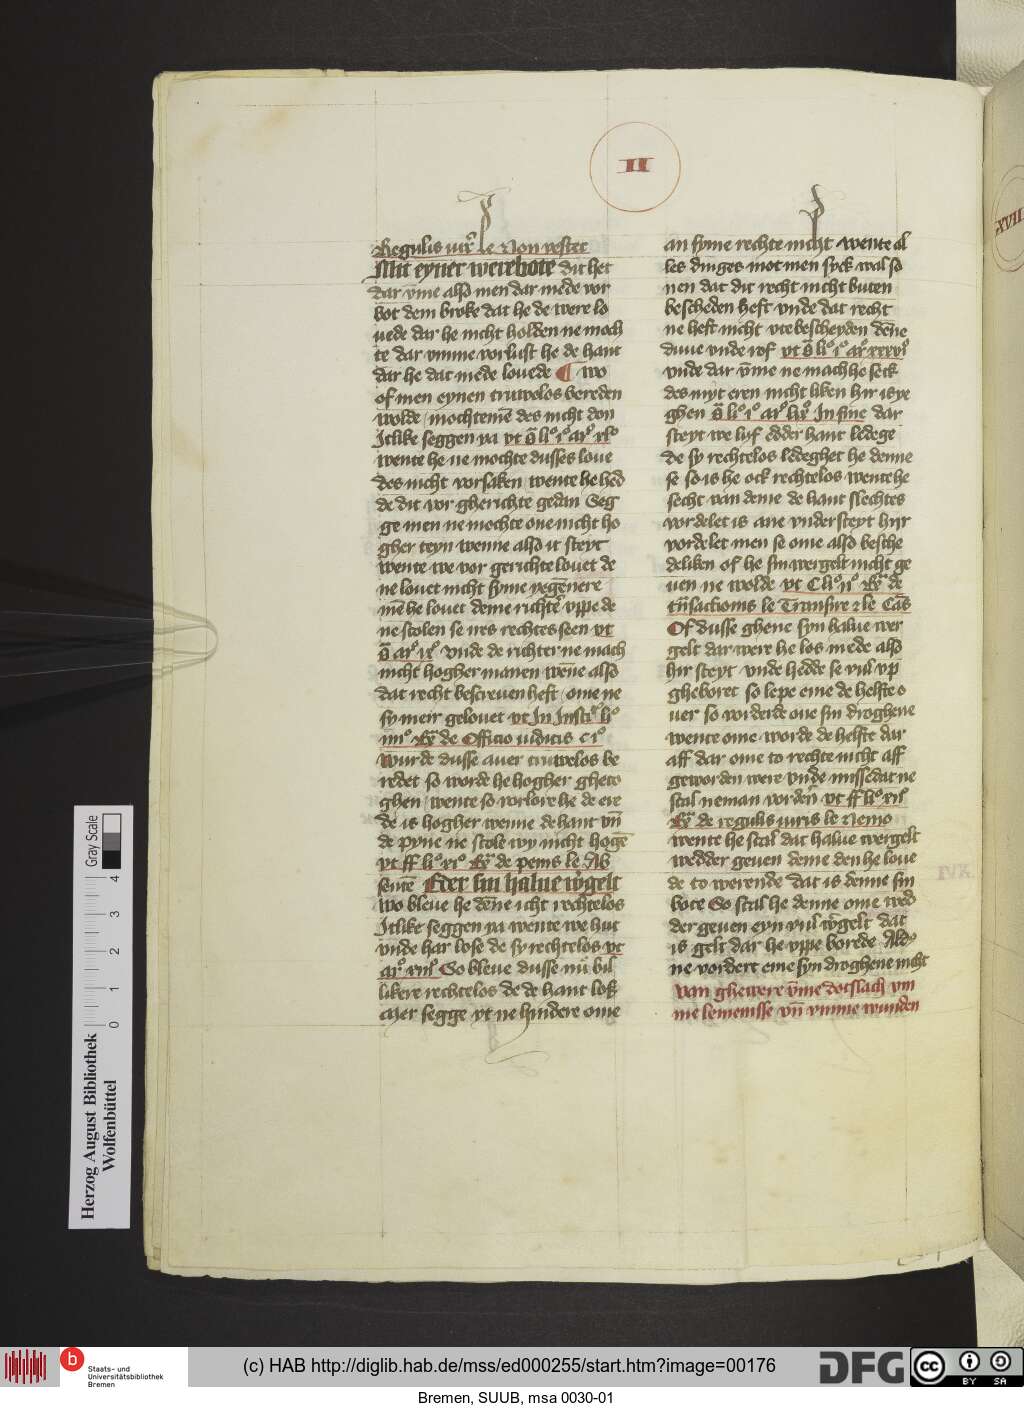 II
Regulis iur͛ le Non vestet
Mit eyner werebote dit het
dar v̄me also men dar mede vor
bot dem broke dat he de were lo
uede dar he nicht holden ne moch
te dar vmme vorlust he de hant
dar he dat mede louede ¶ wo
of men eynen truwelos bereden
wolde mochtemē des nicht don
Itlike seggen ya vt
wente he ne mochte dusses loue
des nicht vorsaken wente he hed
de dit vor gherichte gedan Seg
ge men ne mochte one nicht ho
gher teyn wenne also it steyt
wente we vor gerichte louet de
ne louet nicht syme yegēnere
mē he louet deme richt͛e vppe de
ne stolen se nes rechtes seen vt
vnde de richter ne mach
nicht hogher manen wēne also
dat recht bescreuen heft ome ne
sy meir gelouet vt In
de Officio iudicis
Wurde dusse auer truwelos be
redet so worde he hogher gheto
ghen wente so vorlore he de ere
de is hogher wenne de hant vn̄
de pyne ne stole wy nicht hogē
de penis le Ab
sentē Eder sin halue w͛gelt
wo bleue he dēne icht rechtelos
Itlike seggen ya wente we hut
vnde har lose de sy rechtelos vt
So bleue dusse nū bil
likere rechtelos de de hant loß
Mer segge yt ne hindere ome
an syme rechte nicht wente al
les dinges mot men syck wal so
nen dat dit recht nicht buten
bescheden heft vnde dat recht
ne heft nicht vtebescheyden dēne
duue vnde rof vt
vnde dar v̄me ne machhe seck
des myt eren nicht liken hir is ye
ghen In fine dar
steyt we lyf edder hant ledege
de sy rechtelos ledeghet he denne
se so is he ock rechtelos wente he
secht van deme de hant slechtes
vordelet is ane vnderscheyt hyr
vordelet men se ome also besche
deliken of he sin wergelt nicht ge
uen ne wolde vt
tn̄sactionis le Transire
Of dusse ghene syn halue wer
gelt dar were he los mede also
hir steyt vnde hedde se vul vp
gheboret so lepe eme de helfte o
uer so vorderde oue sin droghene
wente ome worde de helfte dar
aff dar ome to rechte nicht aff
geworden were vnde missedat ne
scal neman vorden vt
de regulis iuris le Nemo
wente he scal dat halue wergelt
wedder geuen deme den he loue
de to werende dat is denne sin
bote So scal he denne ome wed
der geuen eyn vul w͛gelt dat
is gelt dar he vppe borede
ne vordert eme syn droghene nicht
Van ghewere v̄me dotslach vm
me lemenisse vn̄ vmme wunden
XVII
Herzog August Bibliothek
Wolfenbüttel
Gray Scale
0 1 2 3 4
b
Staats- und
Universitätsbibliothek
Bremen
(c) HAB http://diglib.hab.de/mss/ed000255/start.htm?image=00176
DFG
cc BY SA
Bremen, SUUB, msa 0030-01